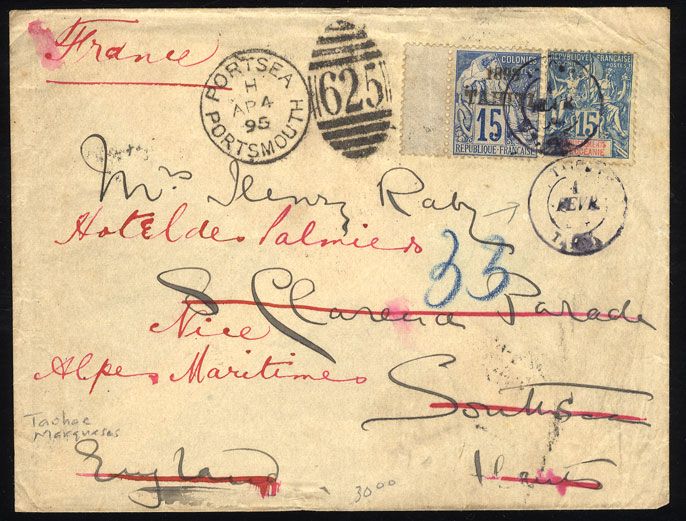 France
PORTSEA
H
AP 4
95
PORTSMOUTH
625
COLONIES
1893
TAHITI
15
REPUBLIQUE FRANÇAISE
REPUBLIQUE FRANÇAISE
15
OCEANIE
1
FEVR
Mrs Henry Raby
Hotel des Palmiers
33
8 Clarence Parade
Nice
Alpes Maritimes
Southsea
Taohae
Marquesas
England
Hants
30 00